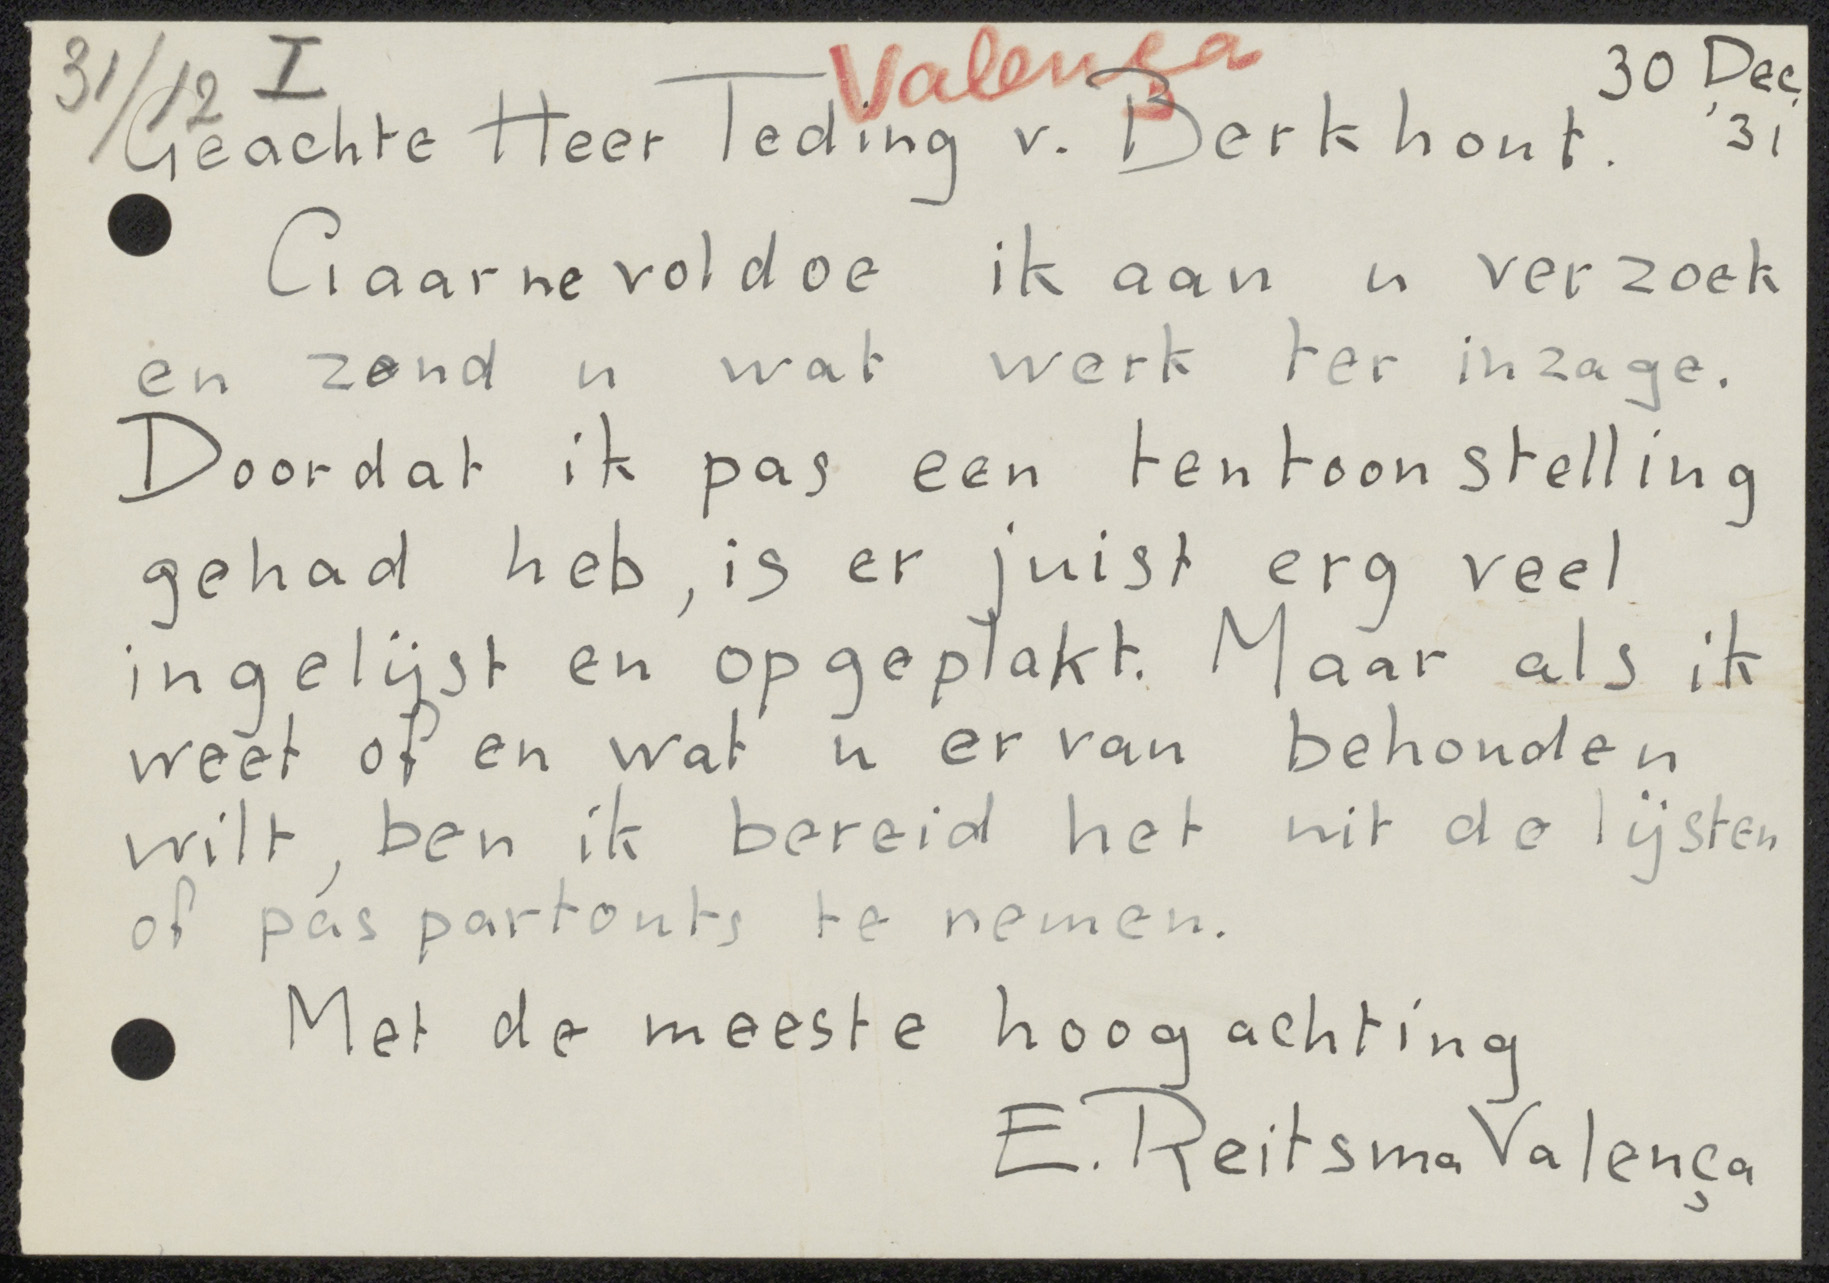 31/12 I Valença 30 Dec.
'31
Geachte Heer Teding v. Berkhout.
Gaarne voldoe ik aan u verzoek
en zend u wat werk ter inzage.
Doordat ik pas een tentoonstelling
gehad heb, is er juist erg veel
ingelijst en opgeplakt. Maar als ik
weet of en wat u ervan behouden
wilt, ben ik bereid het uit de lijsten
of paspartouts te nemen.
Met de meeste hoogachting
E. Reitsma Valença